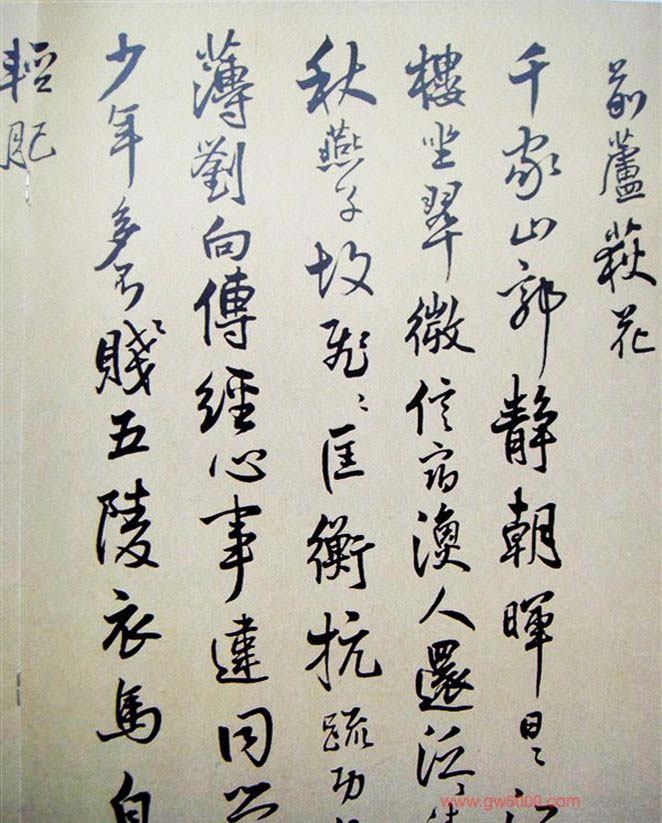 前蘆荻花
千家山郭静朝暉日〻江
樓坐翠微信宿漁人還泛〻
秋燕子故飛〻匡衡抗疏功
薄劉向傳經心事違同學
少年多不賤五陵衣馬自
輕肥
www.gw5000.com